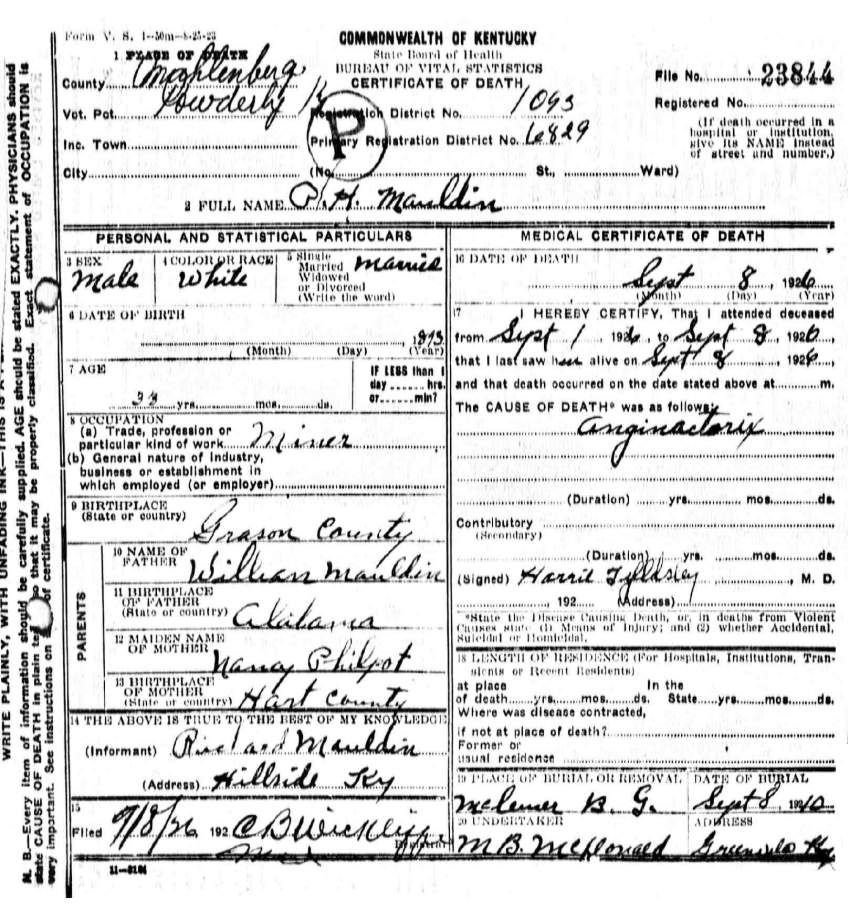 Form V. S. 1-50m-8-25-23
COMMONWEALTH OF KENTUCKY
State Board of Health
BUREAU OF VITAL STATISTICS
CERTIFICATE OF DEATH
1 PLACE OF DEATH
County Mcghlenberg
Vot. Pct. Powderly
Inc. Town
City
P
Registration District No. 1093
Primary Registration District No. 6829
(No. St., Ward)
File No. 23844
Registered No.
(If death occurred in a
hospital or institution,
give its NAME instead
of street and number.)
2 FULL NAME P. H. Mauldin
PERSONAL AND STATISTICAL PARTICULARS
3 SEX
Male
4 COLOR OR RACE
White
5 Single
Married
Widowed
or Divorced
(Write the word)
Married
6 DATE OF BIRTH
1893
(Month) (Day) (Year)
7 AGE
33 yrs. mos. ds.
IF LESS than 1
day hrs.
or min?
8 OCCUPATION
(a) Trade, profession or
particular kind of work Miner
(b) General nature of Industry,
business or establishment in
which employed (or employer)
9 BIRTHPLACE
(State or country) Grason County
PARENTS
10 NAME OF
FATHER William Mauldin
11 BIRTHPLACE
OF FATHER
(State or country) Alabama
12 MAIDEN NAME
OF MOTHER Nancy Philpot
13 BIRTHPLACE
OF MOTHER
(State or country) Hart County
14 THE ABOVE IS TRUE TO THE BEST OF MY KNOWLEDGE
(Informant) Richard Mauldin
(Address) Hillside Ky
15
Filed 9/8/26 192 C B Wickliffe
Registrar
11-8184
MEDICAL CERTIFICATE OF DEATH
16 DATE OF DEATH
Sept 8, 1926
(Month) (Day) (Year)
17 I HEREBY CERTIFY, That I attended deceased
from Sept 1 1926, to Sept 8, 1926,
that I last saw h alive on Sept 8 1926,
and that death occurred on the date stated above at m.
The CAUSE OF DEATH* was as follows:
anginactorix
(Duration) yrs. mos. ds.
Contributory
(Secondary)
(Duration) yrs. mos. ds.
(Signed) Harril Tylldsley, M. D.
192 (Address)
*State the Disease Causing Death, or, in deaths from Violent
Causes state (1) Means of Injury; and (2) whether Accidental,
Suicidal or Homicidal.
18 LENGTH OF RESIDENCE (For Hospitals, Institutions, Tran-
sients or Recent Residents)
at place In the
of death yrs. mos. ds. State yrs. mos. ds.
Where was disease contracted,
if not at place of death?
Former or
usual residence
19 PLACE OF BURIAL OR REMOVAL
B. G.
DATE OF BURIAL
Sept 8 192
20 UNDERTAKER
M B. McDonald
ADDRESS
Greenville Ky
WRITE PLAINLY, WITH UNFADING INK—THIS IS A
N. B.—Every item of information should be carefully supplied. AGE should be stated EXACTLY. PHYSICIANS should
state CAUSE OF DEATH in plain so that it may be properly classified. Exact statement of OCCUPATION is
very important. See instructions on of certificate.